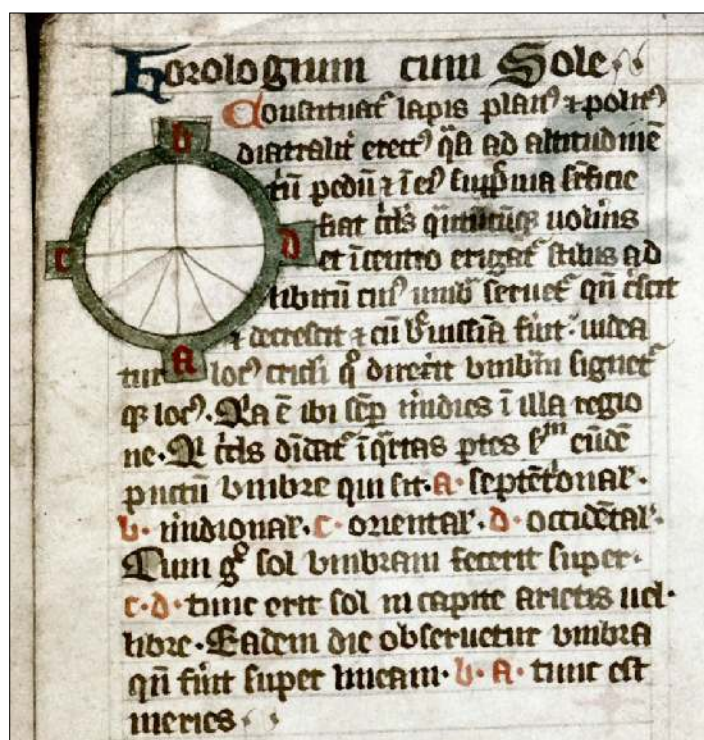 Horologium cum Sole
Constituat᷑ lapis planꝰ ⁊ politꝰ
erectꝰ q̃si ad altitudinẽ
pedũ ⁊ ĩ eiꝰ
fiat uolũs
et ĩ centro erigat᷑ stilus ad
libitũ cuiꝰ umb̃ seruet᷑ qñ c̃scit
⁊ decrescit ⁊ cũ fũit uidea
tur locꝰ circli q̊ umbrã signet᷑
q̃ locꝰ. Na ẽ ibi sẽp m̃idies ĩ illa regio
ne. diuidat᷑ ĩ q̃rtas ptes sᵐ eũdẽ
pũctũ vmbre qui sit. A. septẽtͥonar̃.
b. m̃idionar̃. c. orientar̃. d. occidẽtar̃.
Cum gͦ sol vmbram fecerit super.
c. d. tunc erit sol in capite arietis uel.
libre. Eadem die obseruetur vmbra
qñ fũit super lineam. b. A. tunc est
meries
b
c
d
A